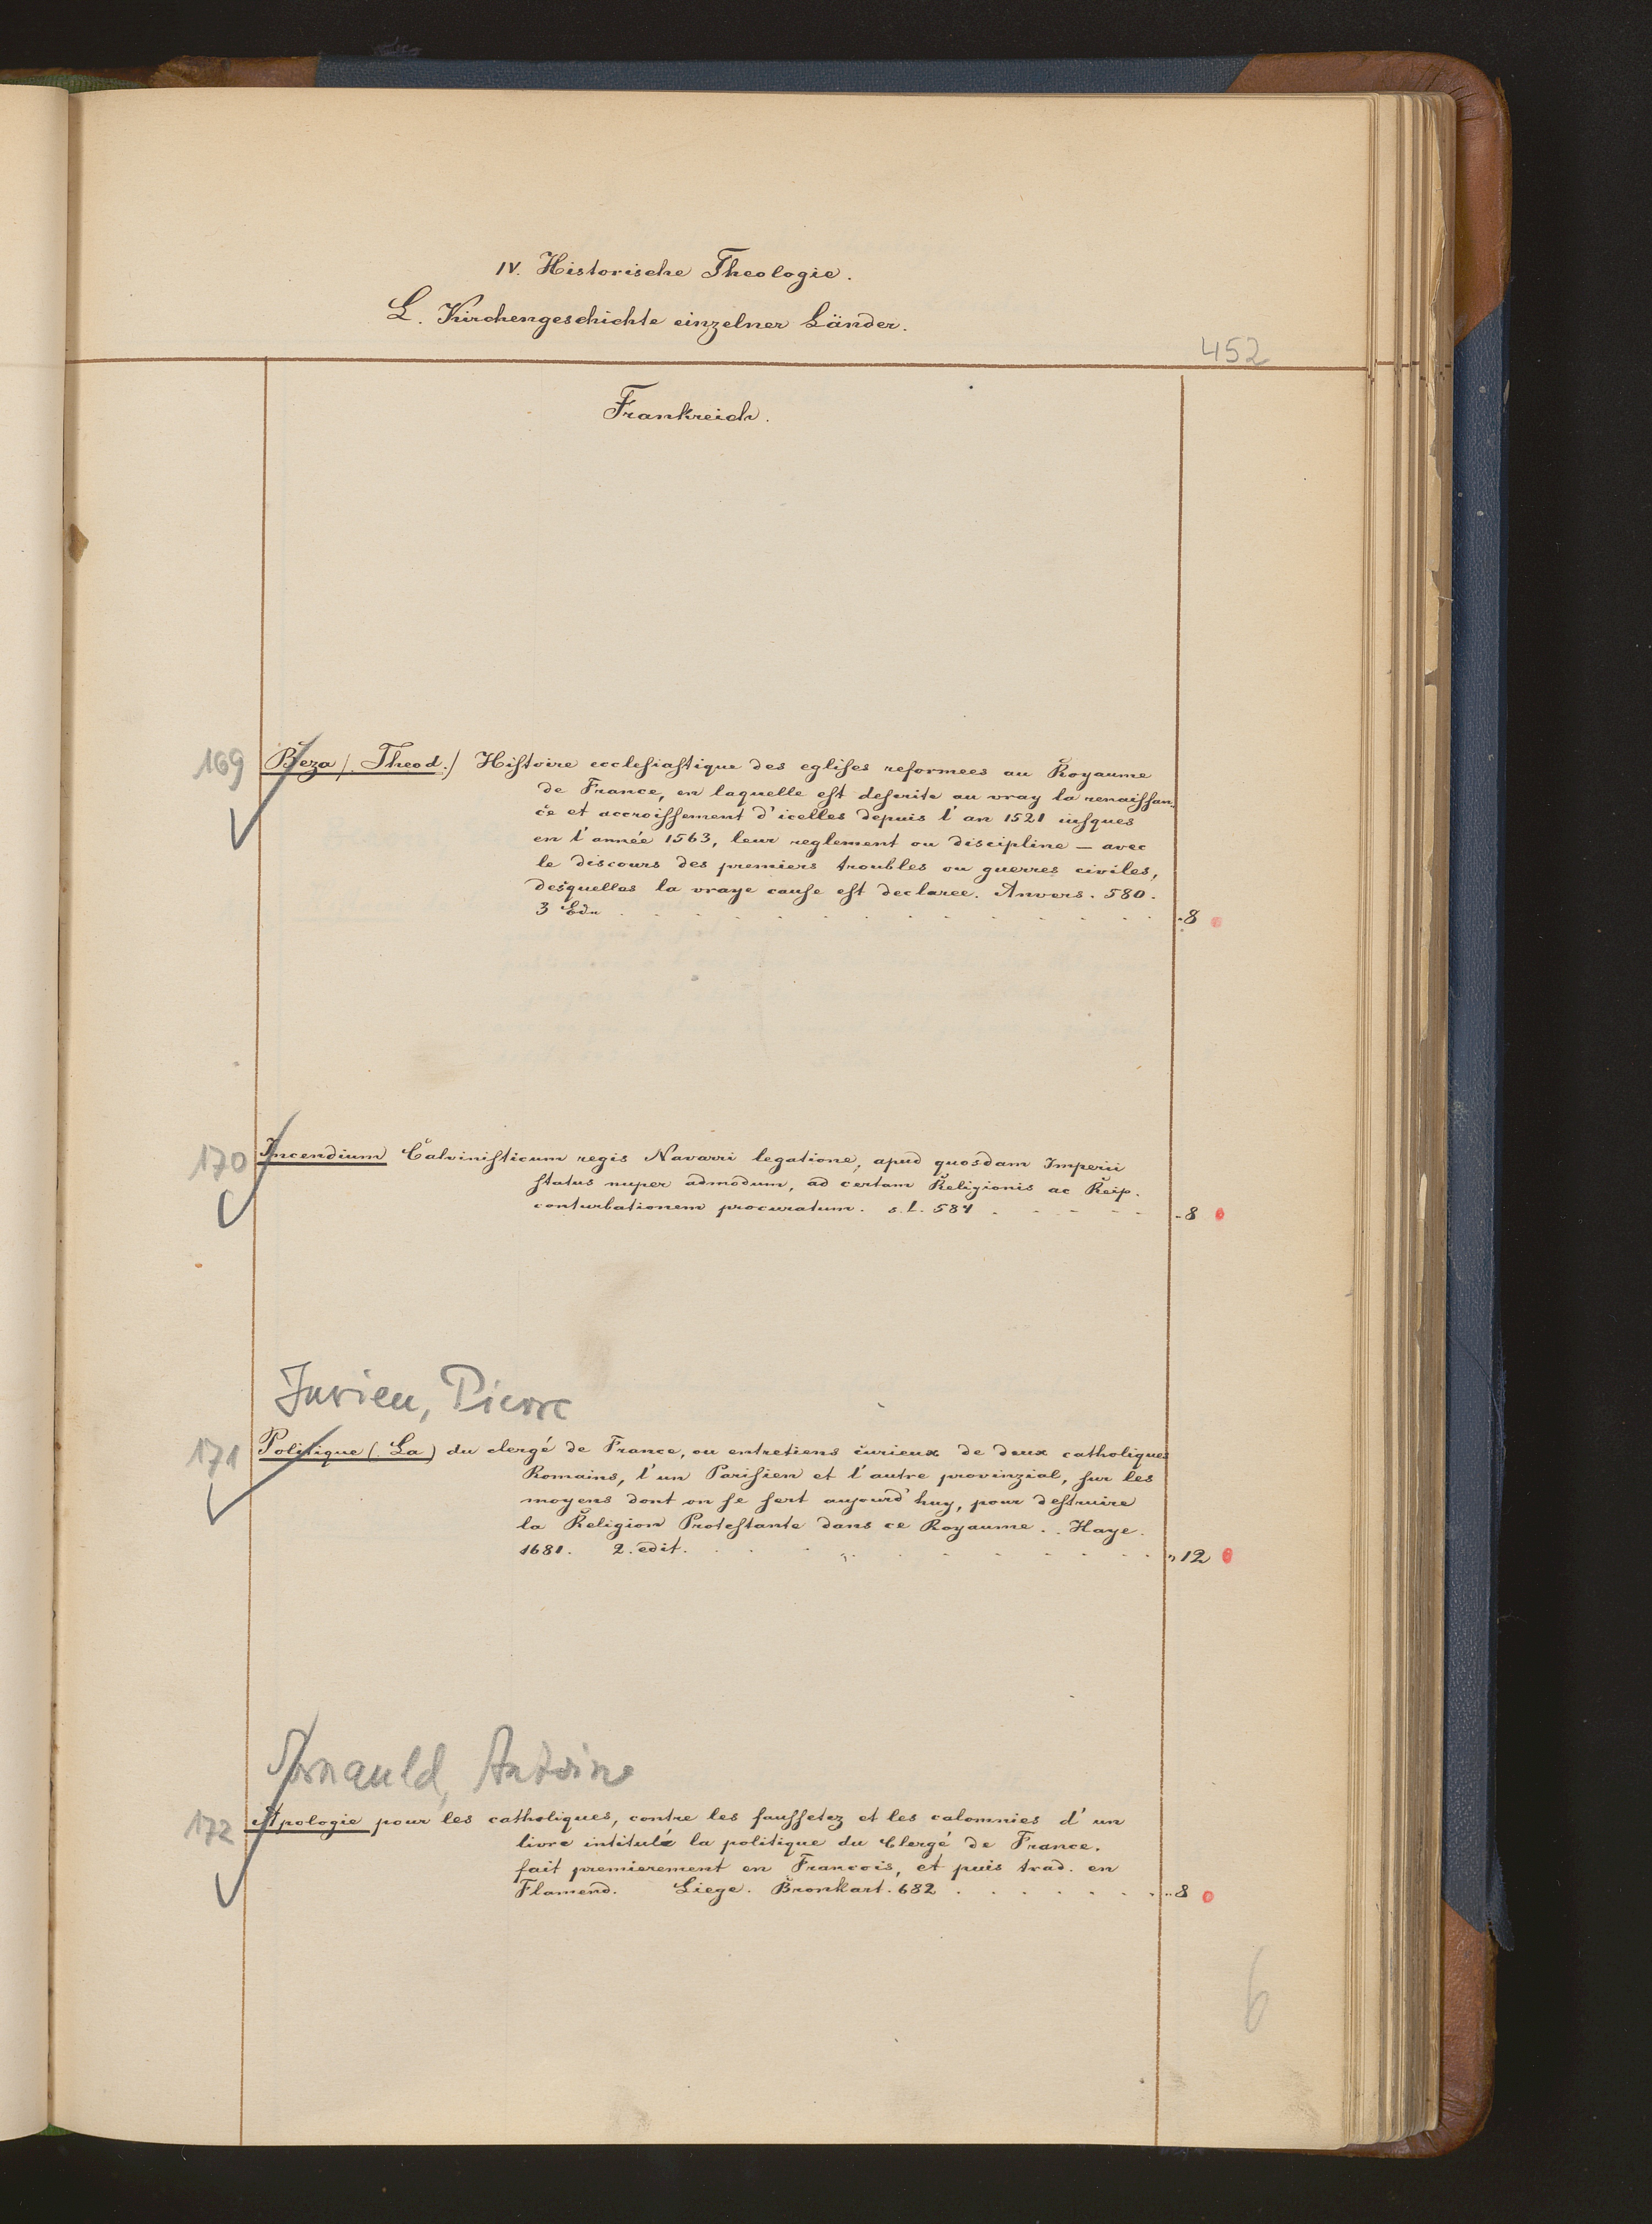 IV. Historische Theologie.
L. Kirchengeschichte einzelner Länder.
452
Frankreich.
169 Beza (Theod.) Histoire ecclesiastique des eglises reformees au Royaume
de France, en laquelle est descrite au vray la renaissan-
ce et accroissement d'icelles depuis l'an 1521 iusques
en l'année 1563, leur reglement ou discipline — avec
le discours des premiers troubles ou guerres civiles,
desquellas la vraye cause est declaree. Anvers. 580.
3 Bde . . . . . . . . . . . . 8
170 Incendium Calvinisticum regis Navarri legatione, apud quosdam Imperii
status nuper admodum, ad certam Religionis ac Reip.
conturbationem procuratum. s. l. 584 . . . . . 8
Jurieu, Pierre
171 Politique (La) du clergé de France, ou entretiens curieux de deux catholiques
Romains, l'un Parisien et l'autre provinzial, sur les
moyens dont on se sert aujourd'huy, pour destruire
la Religion Protestante dans ce Royaume . . Haye.
1681. 2. edit. . . . . . . . . . . " 12
Arnauld, Antoine
172 Apologie pour les catholiques, contre les faussetez et les calomnies d'un
livre intitulé la politique du Clergé de France.
fait premierement en Francois, et puis trad. en
Flamend. Liege. Bronkart. 682 . . . . . . . 8
6